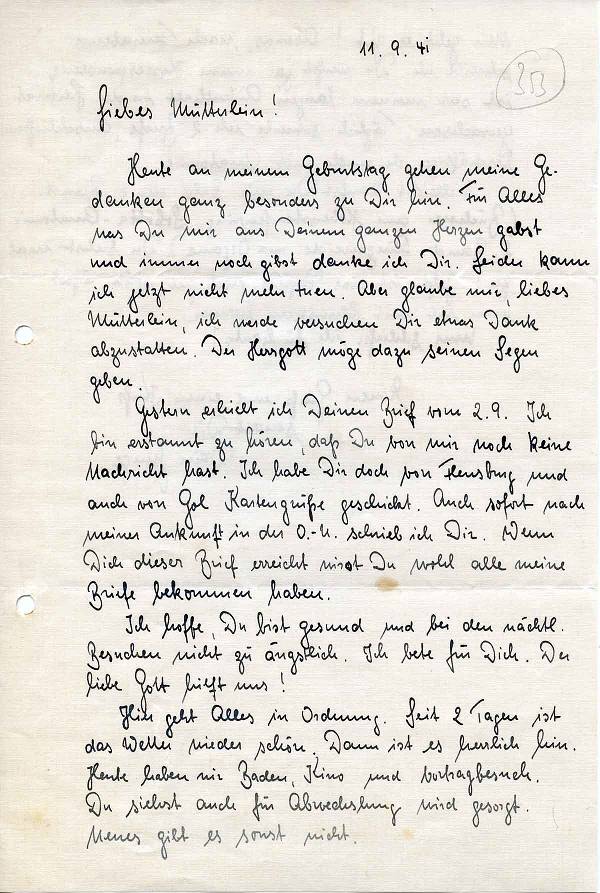 11. 9. 41
33
Liebes Mütterlein!
Heute an meinem Geburtstag gehen meine Ge-
danken ganz besonders zu Dir hin. Für Alles
was Du mir aus Deinem ganzen Herzen gabst
und immer noch gibst danke ich Dir. Leider kann
ich jetzt nicht mehr tuen. Aber glaube mir, liebes
Mütterlein, ich werde versuchen Dir etwas Dank
abzustatten. Der Herrgott möge dazu seinen Segen
geben.
Gestern erhielt ich Deinen Brief vom 2.9. Ich
bin erstaunt zu hören, daß Du von mir noch keine
Nachricht hast. Ich habe Dir doch von Flensburg und
auch von Gol Kartengrüße geschickt. Auch sofort nach
meiner Ankunft in der O.-U. schrieb ich Dir. Wenn
Dich dieser Brief erreicht wirst Du wohl alle meine
Briefe bekommen haben.
Ich hoffe, Du bist gesund und bei den nächtl.
Besuchen nicht zu ängstlich. Ich bete für Dich. Der
liebe Gott hilft uns!
Hier geht Alles in Ordnung. Seit 2 Tagen ist
das Wetter wieder schön. Dann ist es herrlich hier.
Heute haben wir Baden, Kino und Vortragbesuch.
Du siehst auch für Abwechslung wird gesorgt.
Neues gibt es sonst nicht.